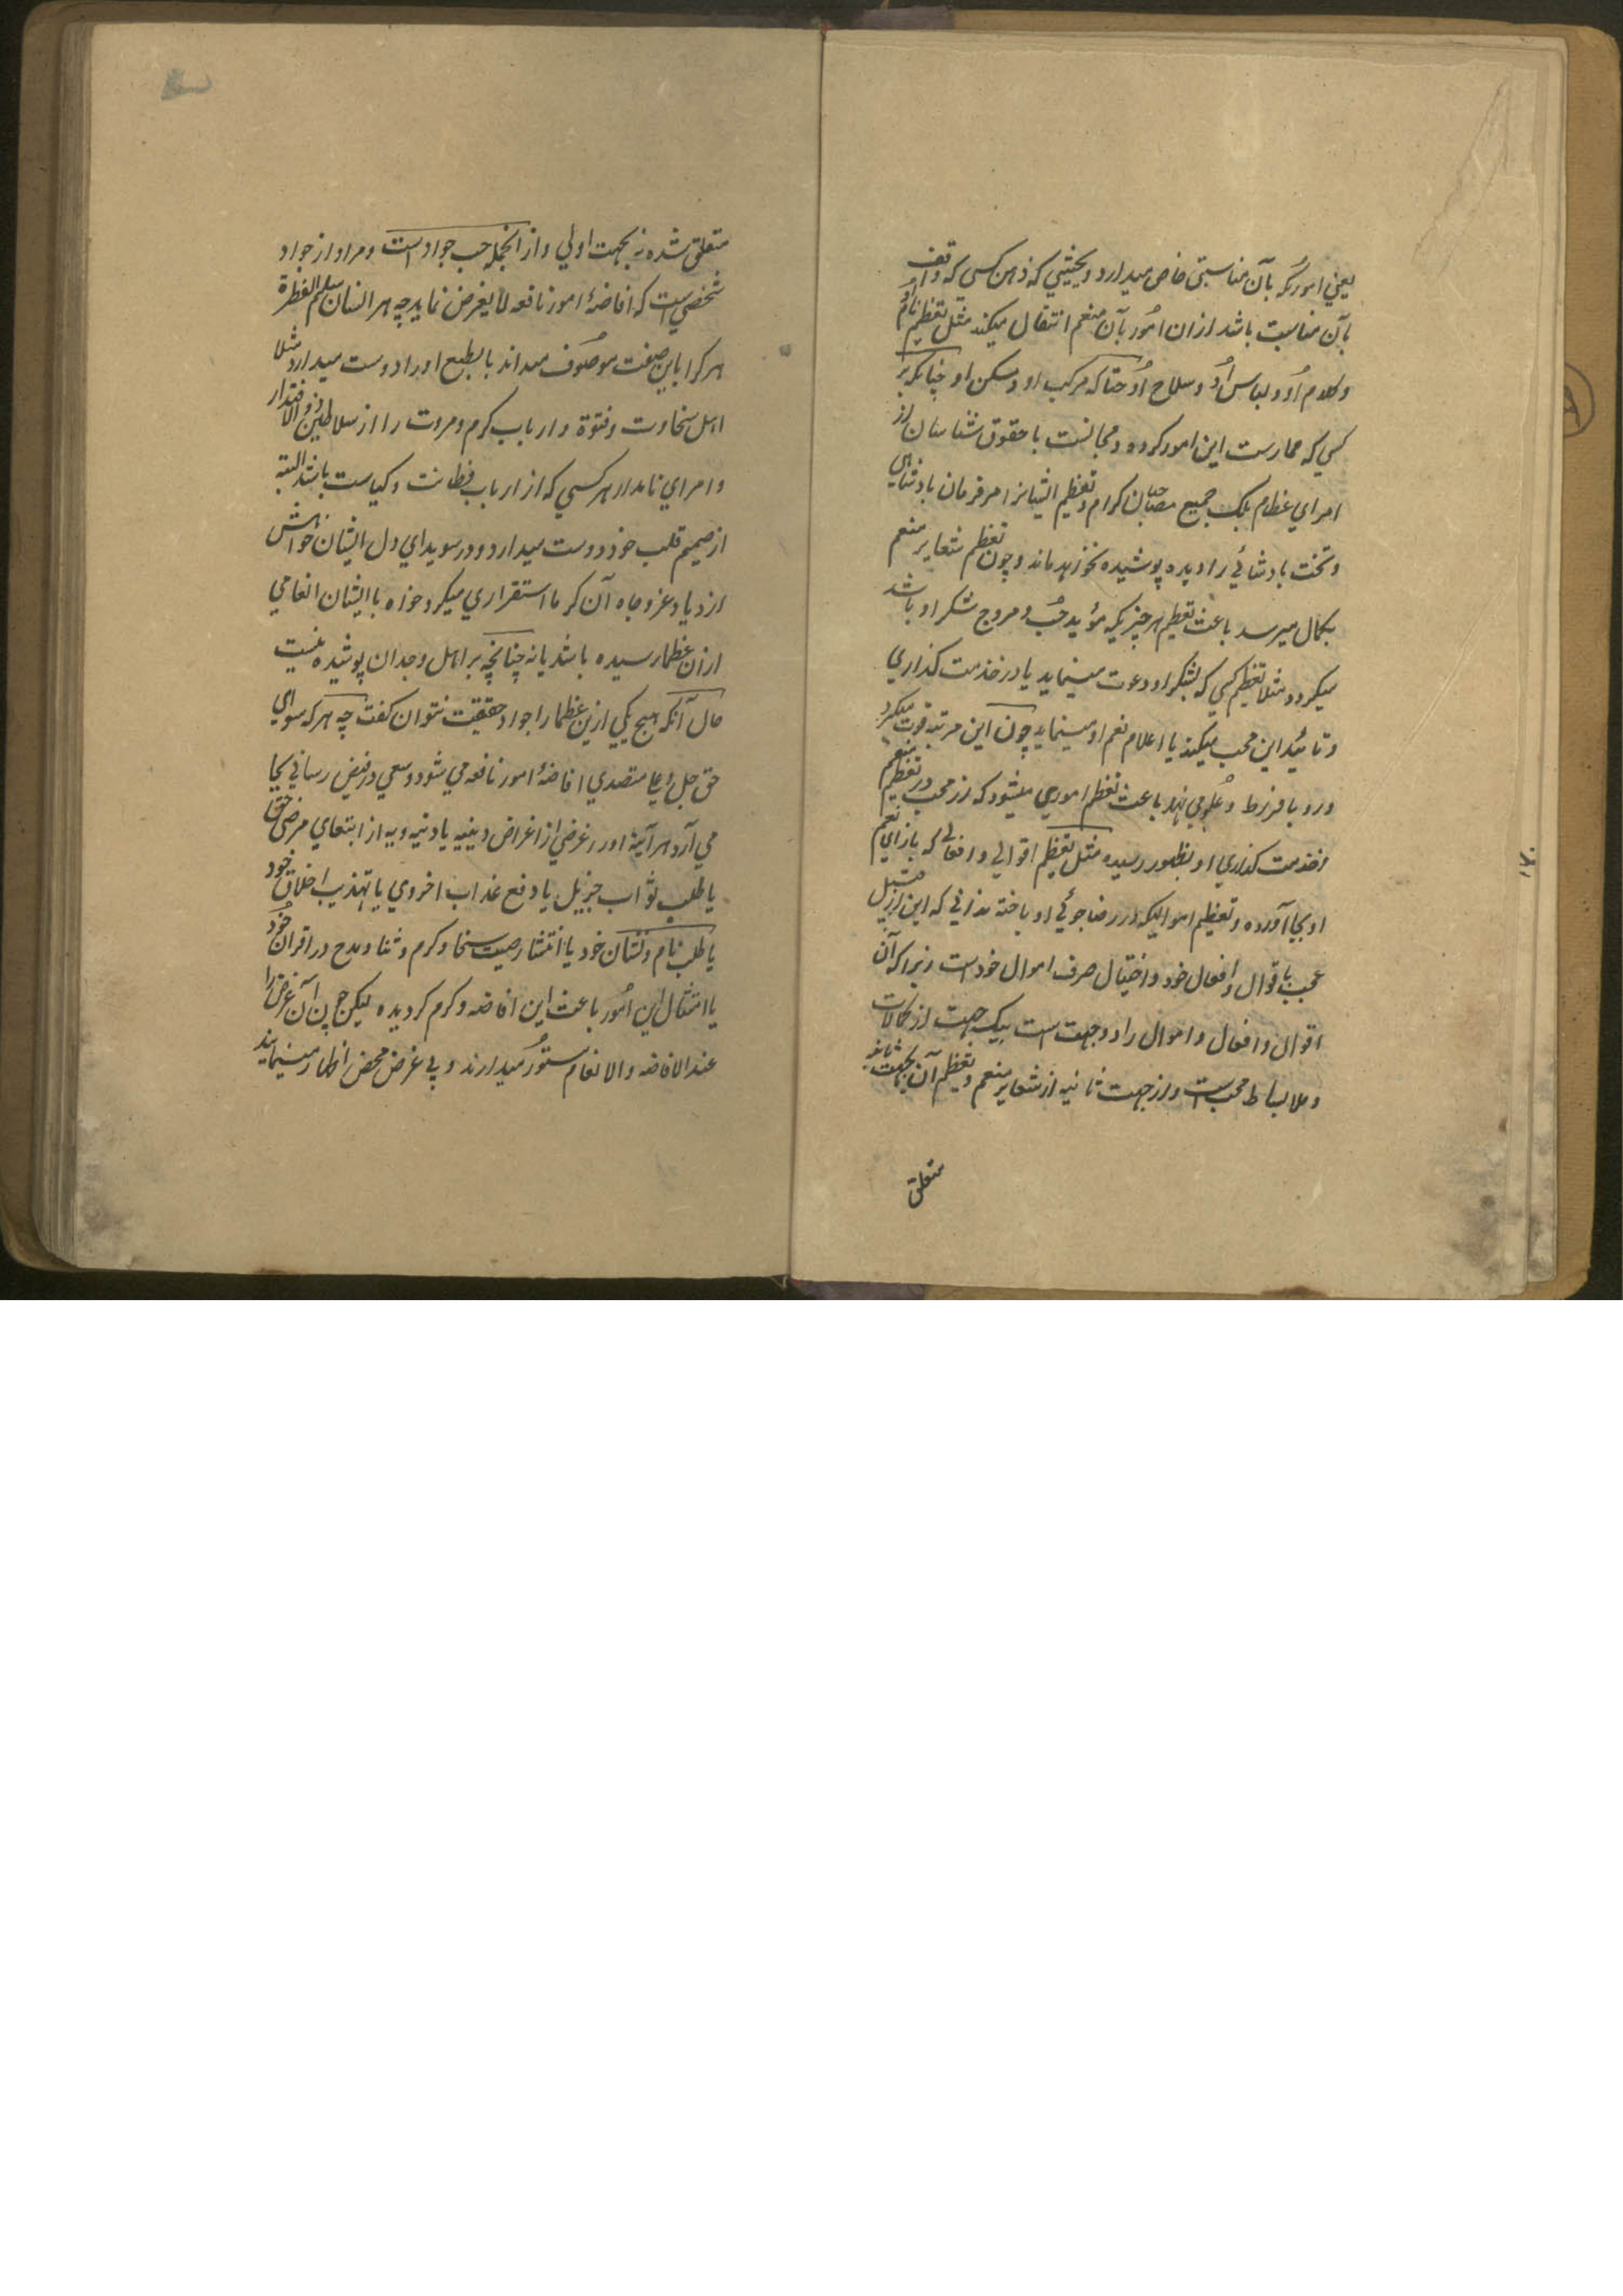 یعنی اموریکه بآن مناسبتی خاص میدارد و بحیثیتی که ذهن کسی که واقف
بآن مناسبت باشد ازان امُور بآن منعم انتقال میکند مثل تعظیم نام اُو
و کلام اُو و لباس اُو و سلاح اُو حتا که مرکب او و مسکن او چنانکه بر
کسی که ممارست این امور کرده و مجالست با حقوق شناسان از
امرای عظام بلک جمیع مصاحبان کرام و تعظیم ایشانرا مر فرمان بادشاهی
و تخت بادشاهی را دیده پوشیده نخواهد ماند و چون تعظیم شعایر منعم
بکمال میرسد باعث تعظیم هر چیزیکه مؤید حُب و مروج شکر او باشد
میکردد مثلا تعظیم کسی که بشکر او دعوت مینماید یا در خدمت کذاری
و تائید این محب میکند یا اعلام نعم او مینماید چون این مرتبه قوت میکیرد
و رو با فرط و علوی نهد باعث تعظیم اموری میشود که از محب در تعظیم منعم
و خدمت کذاری او بظهور رسیده مثل تعظیم اقوالی و افعالی که بازای نعم
او بجا آورده و تعظیم اموالیکه در رضا جوئی او باخته نه ازانی که این از قبیل
عجب باقوال و افعال خود و اختیال صرف اموال خود است زیرا که آن
اقوال و افعال و اموال را دو جهت است بیک جهت از کمالات
و ملابسات محب ست و از جهت ثانیه از شعایر منعم و تعظیم آن بجهت ثانیه
متعلق
۱۷۰
متعلق شده نه بجهت اولی و از انجمله حب جواد است و مراد از جواد
شخصی ست که افاضهٔ امور نافعه لا یغرض نماید چه هر انسان سلیم الفطرة
هر کرا باین صفت موصُوف میداند بالطبع او را دوست میدارد مثلا
اهل سخاوت و فتوّة و ارباب کرم و مروت را از سلاطین ذو الاقتدار
و امرای نامدار هر کسی که از ارباب فطانت و کیاست باشد البته
از صمیم قلب خود دوست میدارد و در سویدای دل ایشان خواهش
ازدیاد عز و جاه آن کرما استقراری میکیرد خواه با ایشان انعامی
ازان عظما رسیده باشد یا نه چنانچه بر اهل وجدان پوشیده نیست
حال آنکه هیچ یکی ازین عظما را جواد حقیقت نتوان کفت چه هر که سوای
حق جل و علا متصدی افاضهٔ امور نافعه می شود و سعی در فیض رسانی بجا
می آرد هر آینه او را غرضی از اغراض دینیه یا دنیویه از ابتغای مرضی حق
یا طلب ثواب جزیل یا دفع عذاب اخروی یا تهذیب اخلاق خود
یا طلب نام و نشان خود یا انتشار صیت سخا و کرم و ثنا و مدح در اقران خُود
یا امتثال این امُور باعث این افاضه و کرم کردیده لیکن چون آن غرض را
عند الافاضه و الانعام مستور میدارند و بی غرض محض اظهار مینمایند